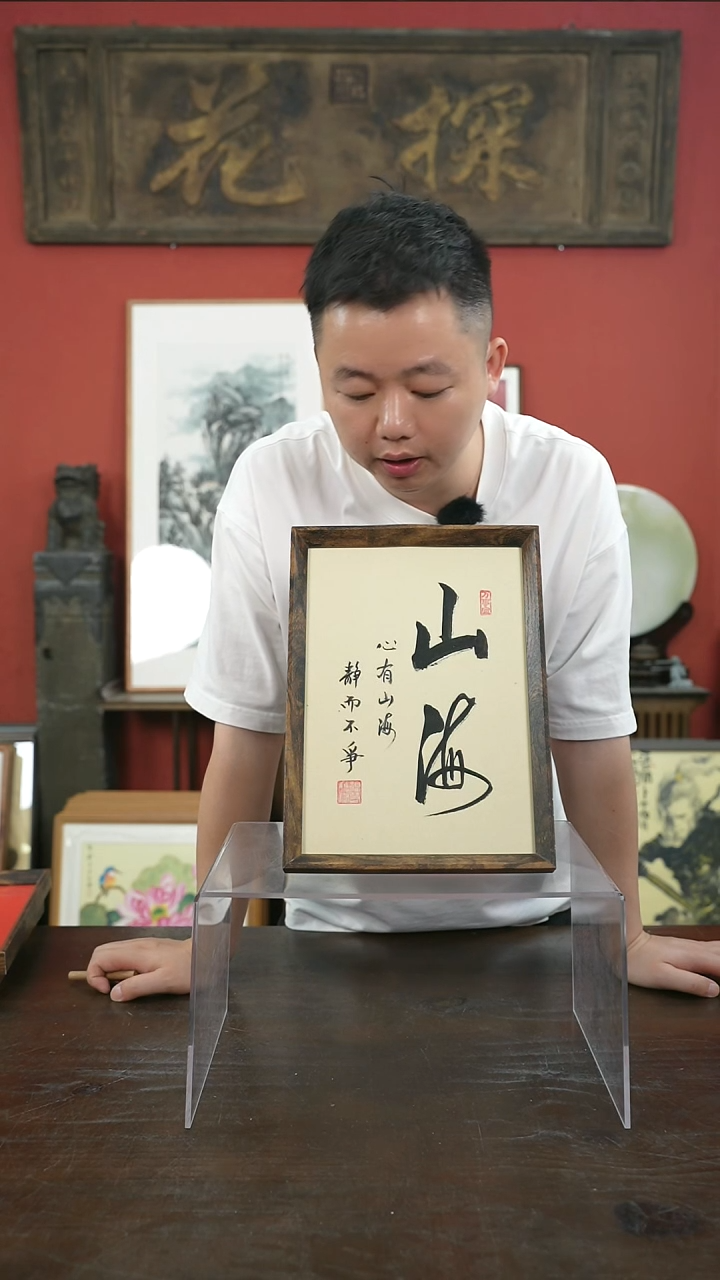 探花
山海
心有山海
静而不爭